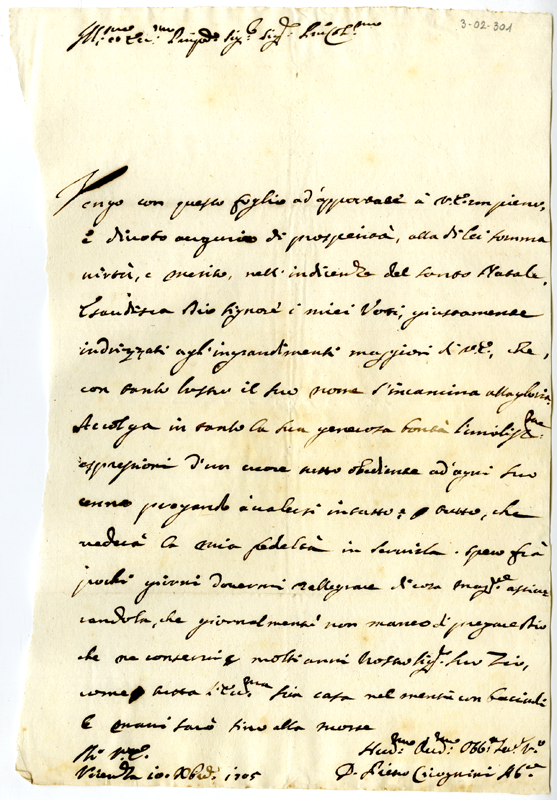 3-02-301
Ill.mo et Ecc.mo Sig.r Sig.r Pron Col.mo
Vengo con questo foglio ad'apportare à V.E. un pieno,
e divoto augurio di prosperità, alla di lei somma
virtù, e merito, nell'incidenza del santo Natale.
Esaudisca Dio Signore i miei Voti, giustamente
indrizzati agl'ingrandimenti maggiori di V.E., che,
con tanto lustro il suo nome s'incamina alla gloria.
Accolga in tanto la sua generosa bontà l'umiliss.me
espressioni d'un cuore tutto obediente ad'ogni suo
cenno pregando à valersi in tutto, e tutto, che
vedrà la mia fedeltà in servirla. spero frà
pochi giorni dovermi rallegrare di cosa mag.re assicu
randola, che giornalmente non manco di pregare Dio
che ne conservi molti anni Nostro Sig.r suo Zio,
come tutta l'Ecc.ma sua casa nel mentre con baciarli
le mani sarò sino alla morte
Di V.E.
Venezia 10. Xbre. 1705
Hum.mo Dev.mo Obb.mo Ser. V.o
D. Pietro Cicognini Ab.e